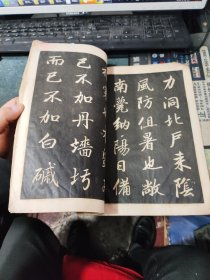 力洞北戶来陰
風防徂暑也敞
南甍納陽日備
已不加丹墻圬
而已不加白磩